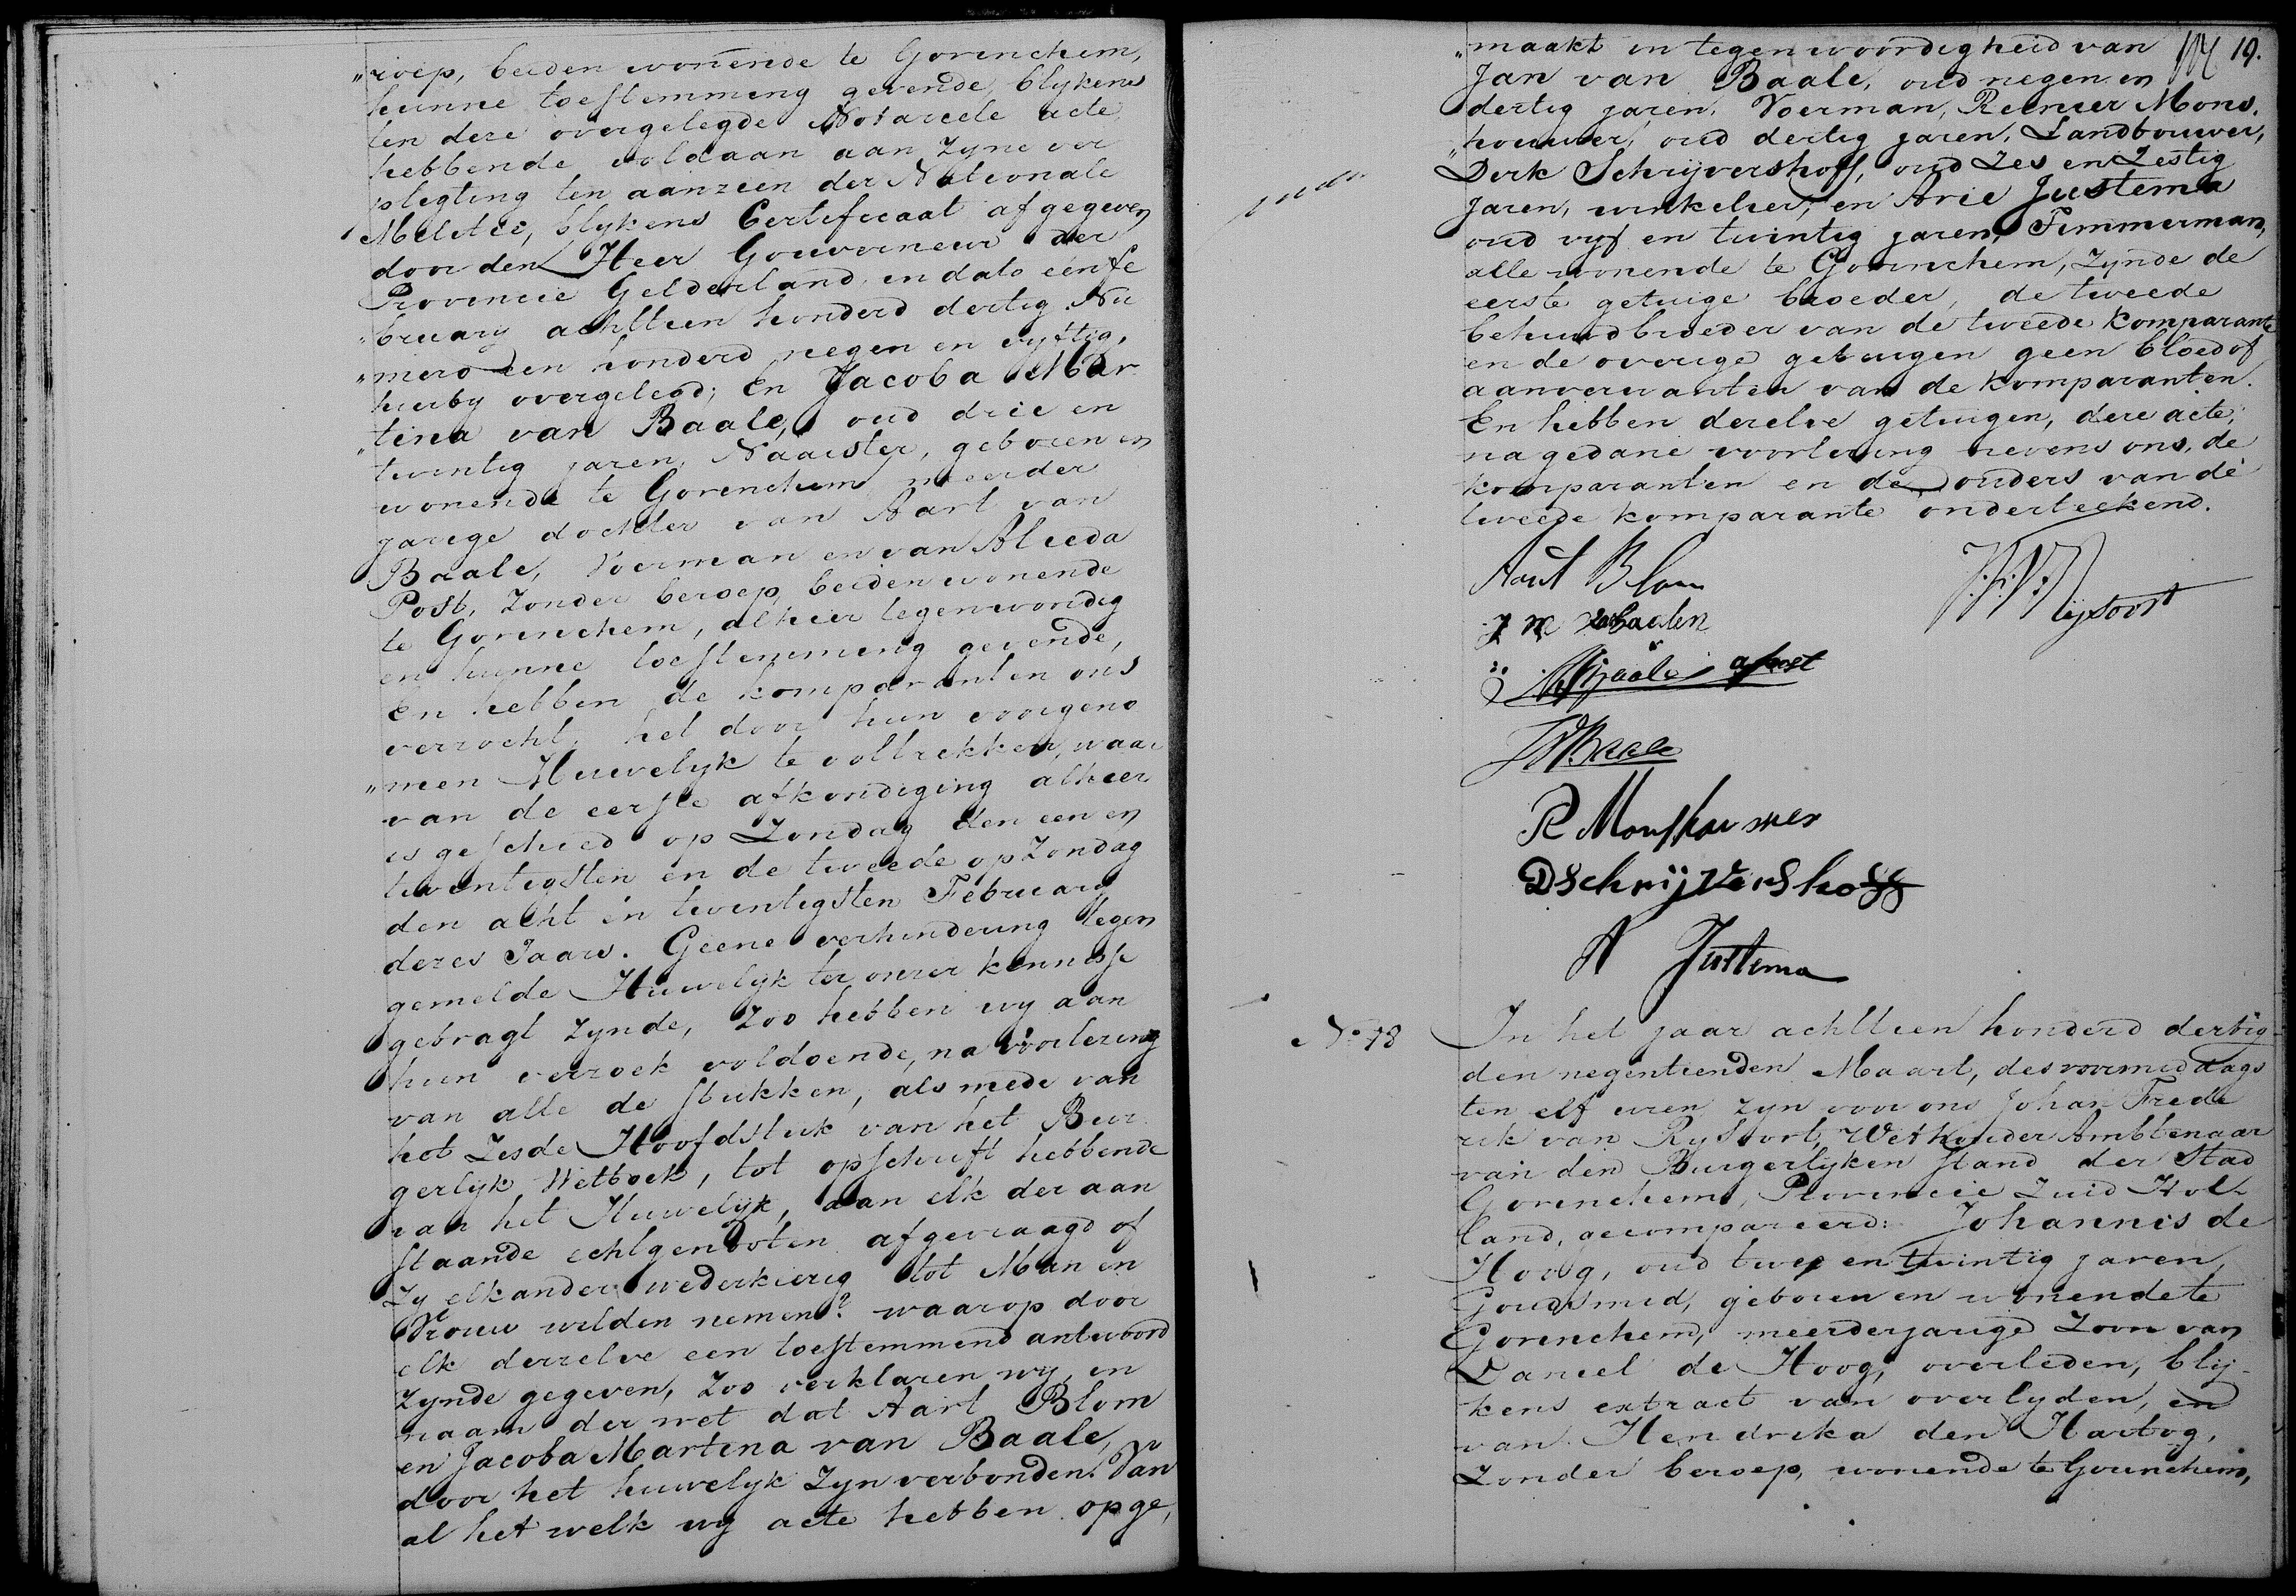 "roep, beiden wonende te Gorinchem,
hunne toestemming gevende, blykens
ten deze overgelegde Notariele acte,
hebbende voldaan aan zyne ver
"pligting ten aanzien der Nationale
Militie, blykens Certificaat afgegeven
door den Heer Gouverneur der
Provincie Gelderland, in dato één fe
"bruary achttien honderd dertig Nu
"mero een honderd negen en vyftig,
hierby overgelegd; En Jacoba Mar
"tina van Baale, oud drie en
twintig jaren, Naaister, geboren en
wonende te Gorinchem, meerder
jarige dochter van Aart van
Baale, Voerman en van Aleeda
Post, zonder beroep, beiden wonende
te Gorinchem, alhier tegenwoordig
en hunne toestemming gevende,
En hebben de komparanten ons
verzocht, het door hun voorgeno
"men Huwelyk te voltrekken, waar
van de eerste afkondiging alhier
is geschied op Zondag den een en
twintigsten en de tweede op Zondag
den acht en twintigsten February
dezes Jaars. Geene verhindering tegen
gemelde Huwelyk ter onzer kennisse
gebragt zynde, zoo hebben wy aan
hun verzoek voldoende, na voorlezing
van alle de stukken, als mede van
het Zesde Hoofdstuk van het Bur
gerlyk Wetboek, tot opschrift hebbende
van het Huwelyk, aan elk der aan
staande echtgenooten afgevraagd of
Zy elkander wederkierig tot Man en
Vrouw wilden nemen? waarop door
elk derzelve een toestemmend antwoord
zynde gegeven, zoo verklaren wy, in
naam der wet dat Aart Blom
en Jacoba Martina van Baale,
door het huwelyk zyn verbonden. Van
al het welk wy acte hebben opge,
"maakt in tegenwoordigheid van 19.
Jan van Baale, oud negen en
dertig jaren, Voerman, Reinier Mons.
"houwer, oud dertig jaren, Landbouwer,
Derk Schrijvershoff, oud Zes en Zestig
Jaren, winkelier, en Arie Justema
oud vyf en twintig jaren, Timmerman,
alle wonende te Gorinchem, zynde de
eerste getuige broeder, de tweede
behuwdbroeder van de tweede komparante
en de overige getuigen geen bloed of
aanverwanten van de komparanten.
En hebben dezelve getuigen, deze acte,
na gedane voorlezing nevens ons, de
komparanten en de ouders van de
tweede komparante onderteekend.
Aart Blom
J M v Baalen
Baale a post
J V Baale
R Monshouwer
D Schrijvershoff
A Justema
No 18
In het jaar achttien honderd dertig
den negentienden Maart, des voormiddags
ten elf uren zyn voor ons Johan Frede
rik van Rysoort, Wethouder Ambtenaar
van den Burgerlyken stand der Stad
Gorinchem, Provincie Zuid Hol-
land, gecompareerd: Johannis de
Hoog, oud twee en twintig jaren,
Goudsmid, geboren en wonende te
Gorinchem, meerderjarige Zoon van
Daniel de Hoog, overleden, blij-
kens extract van overlyden, en
van Hendrika den Hartog,
zonder beroep, wonende te Gorinchem,